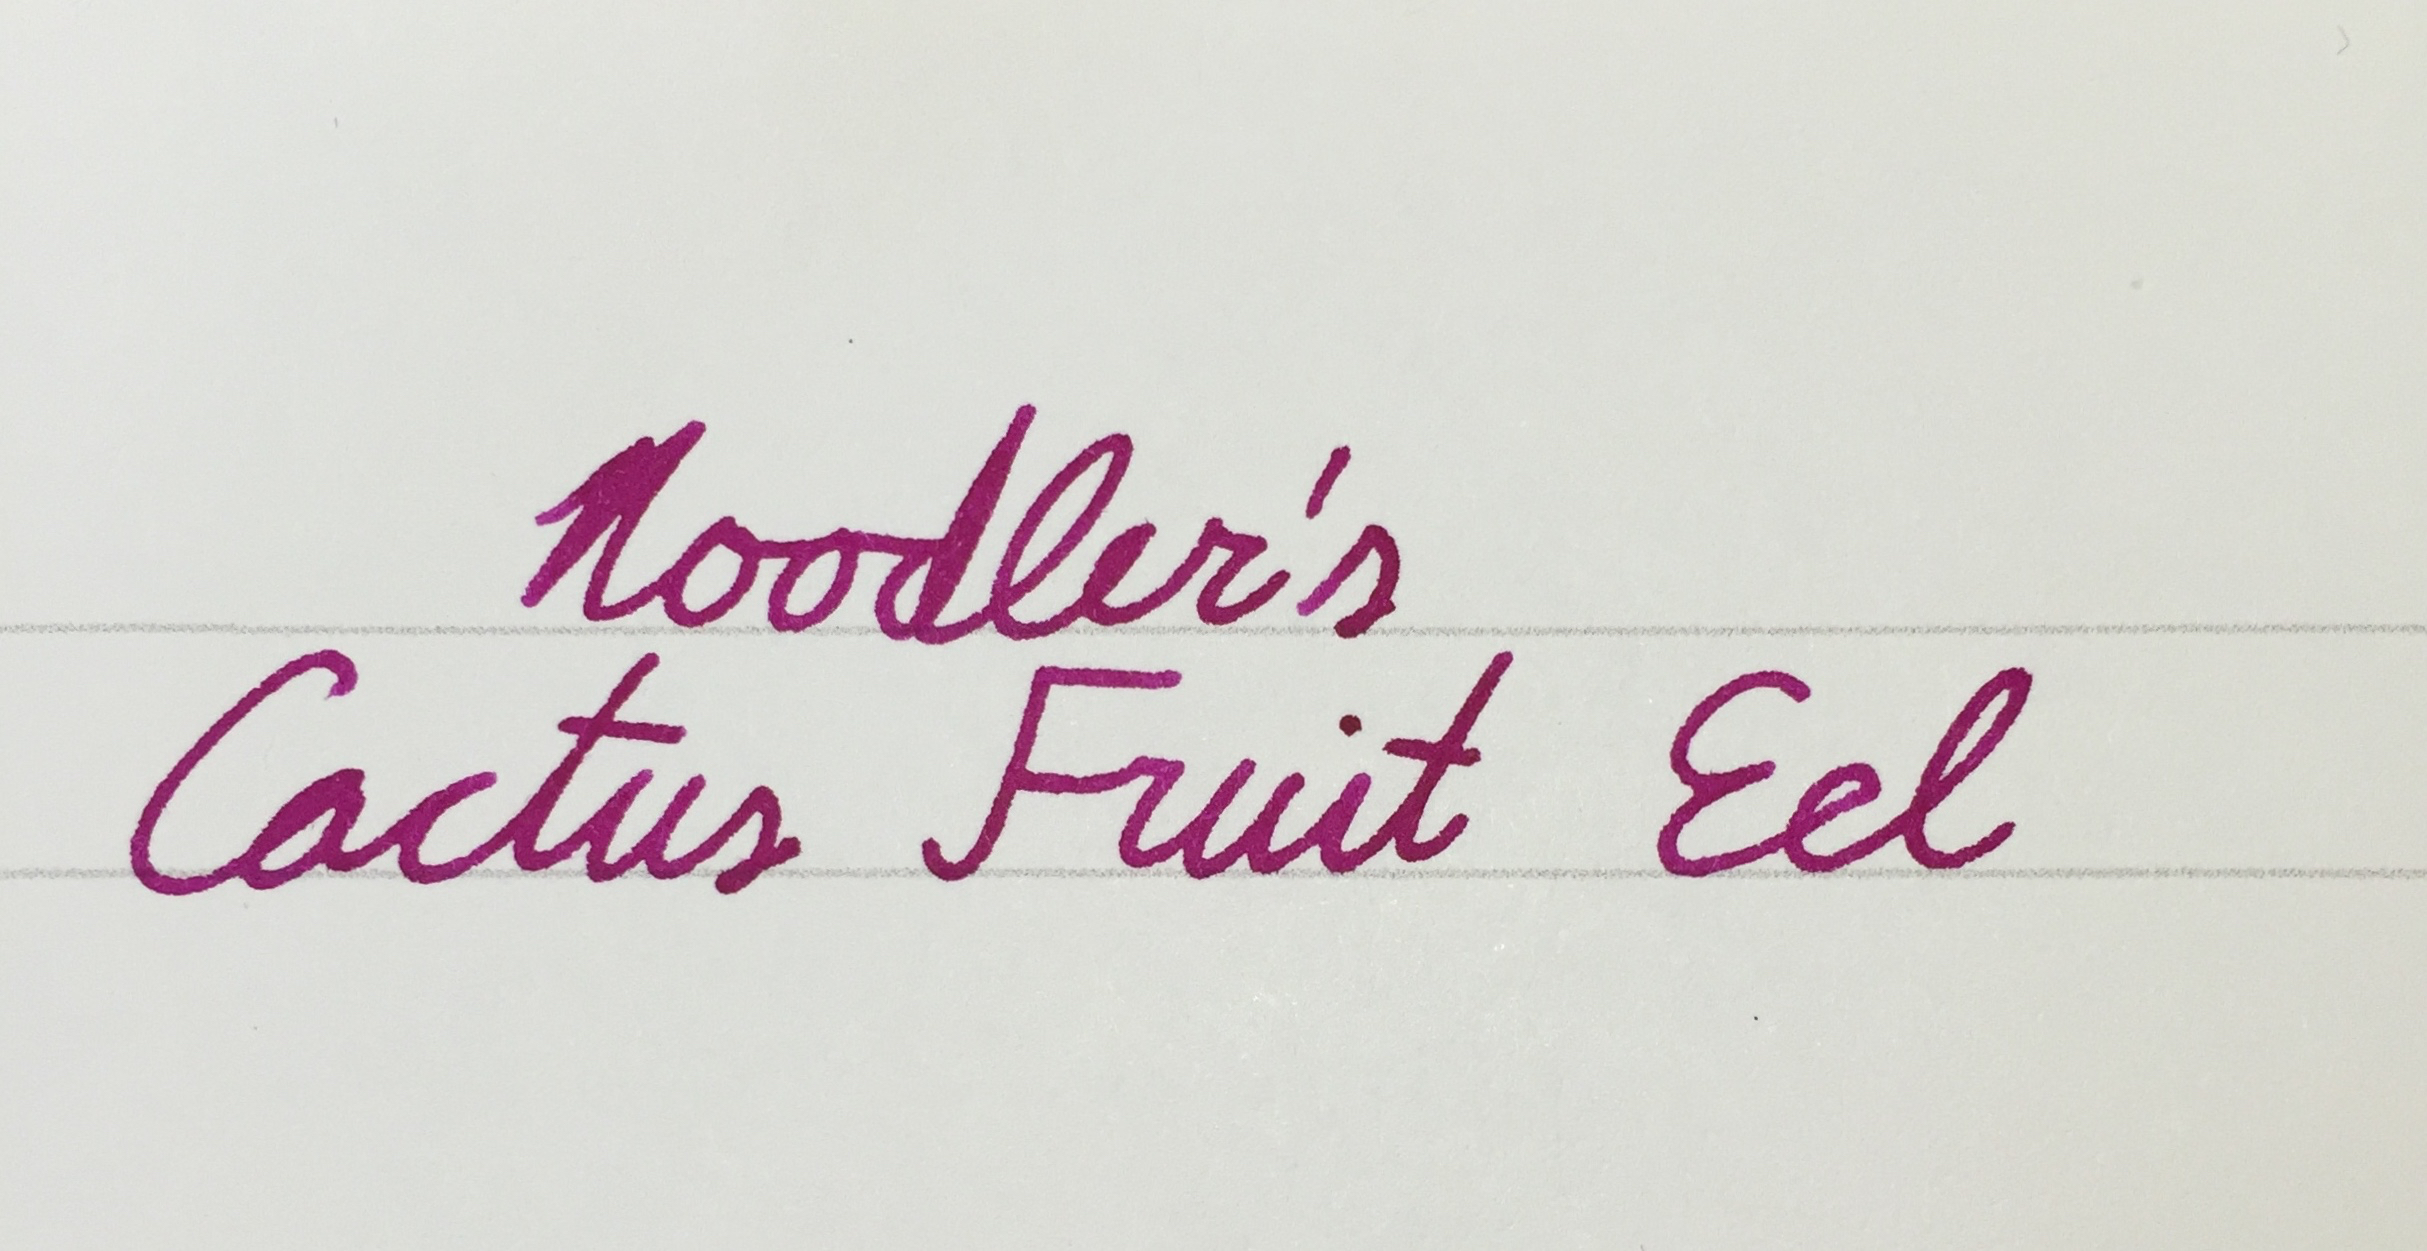 Noodler's
Cactus Fruit Eel